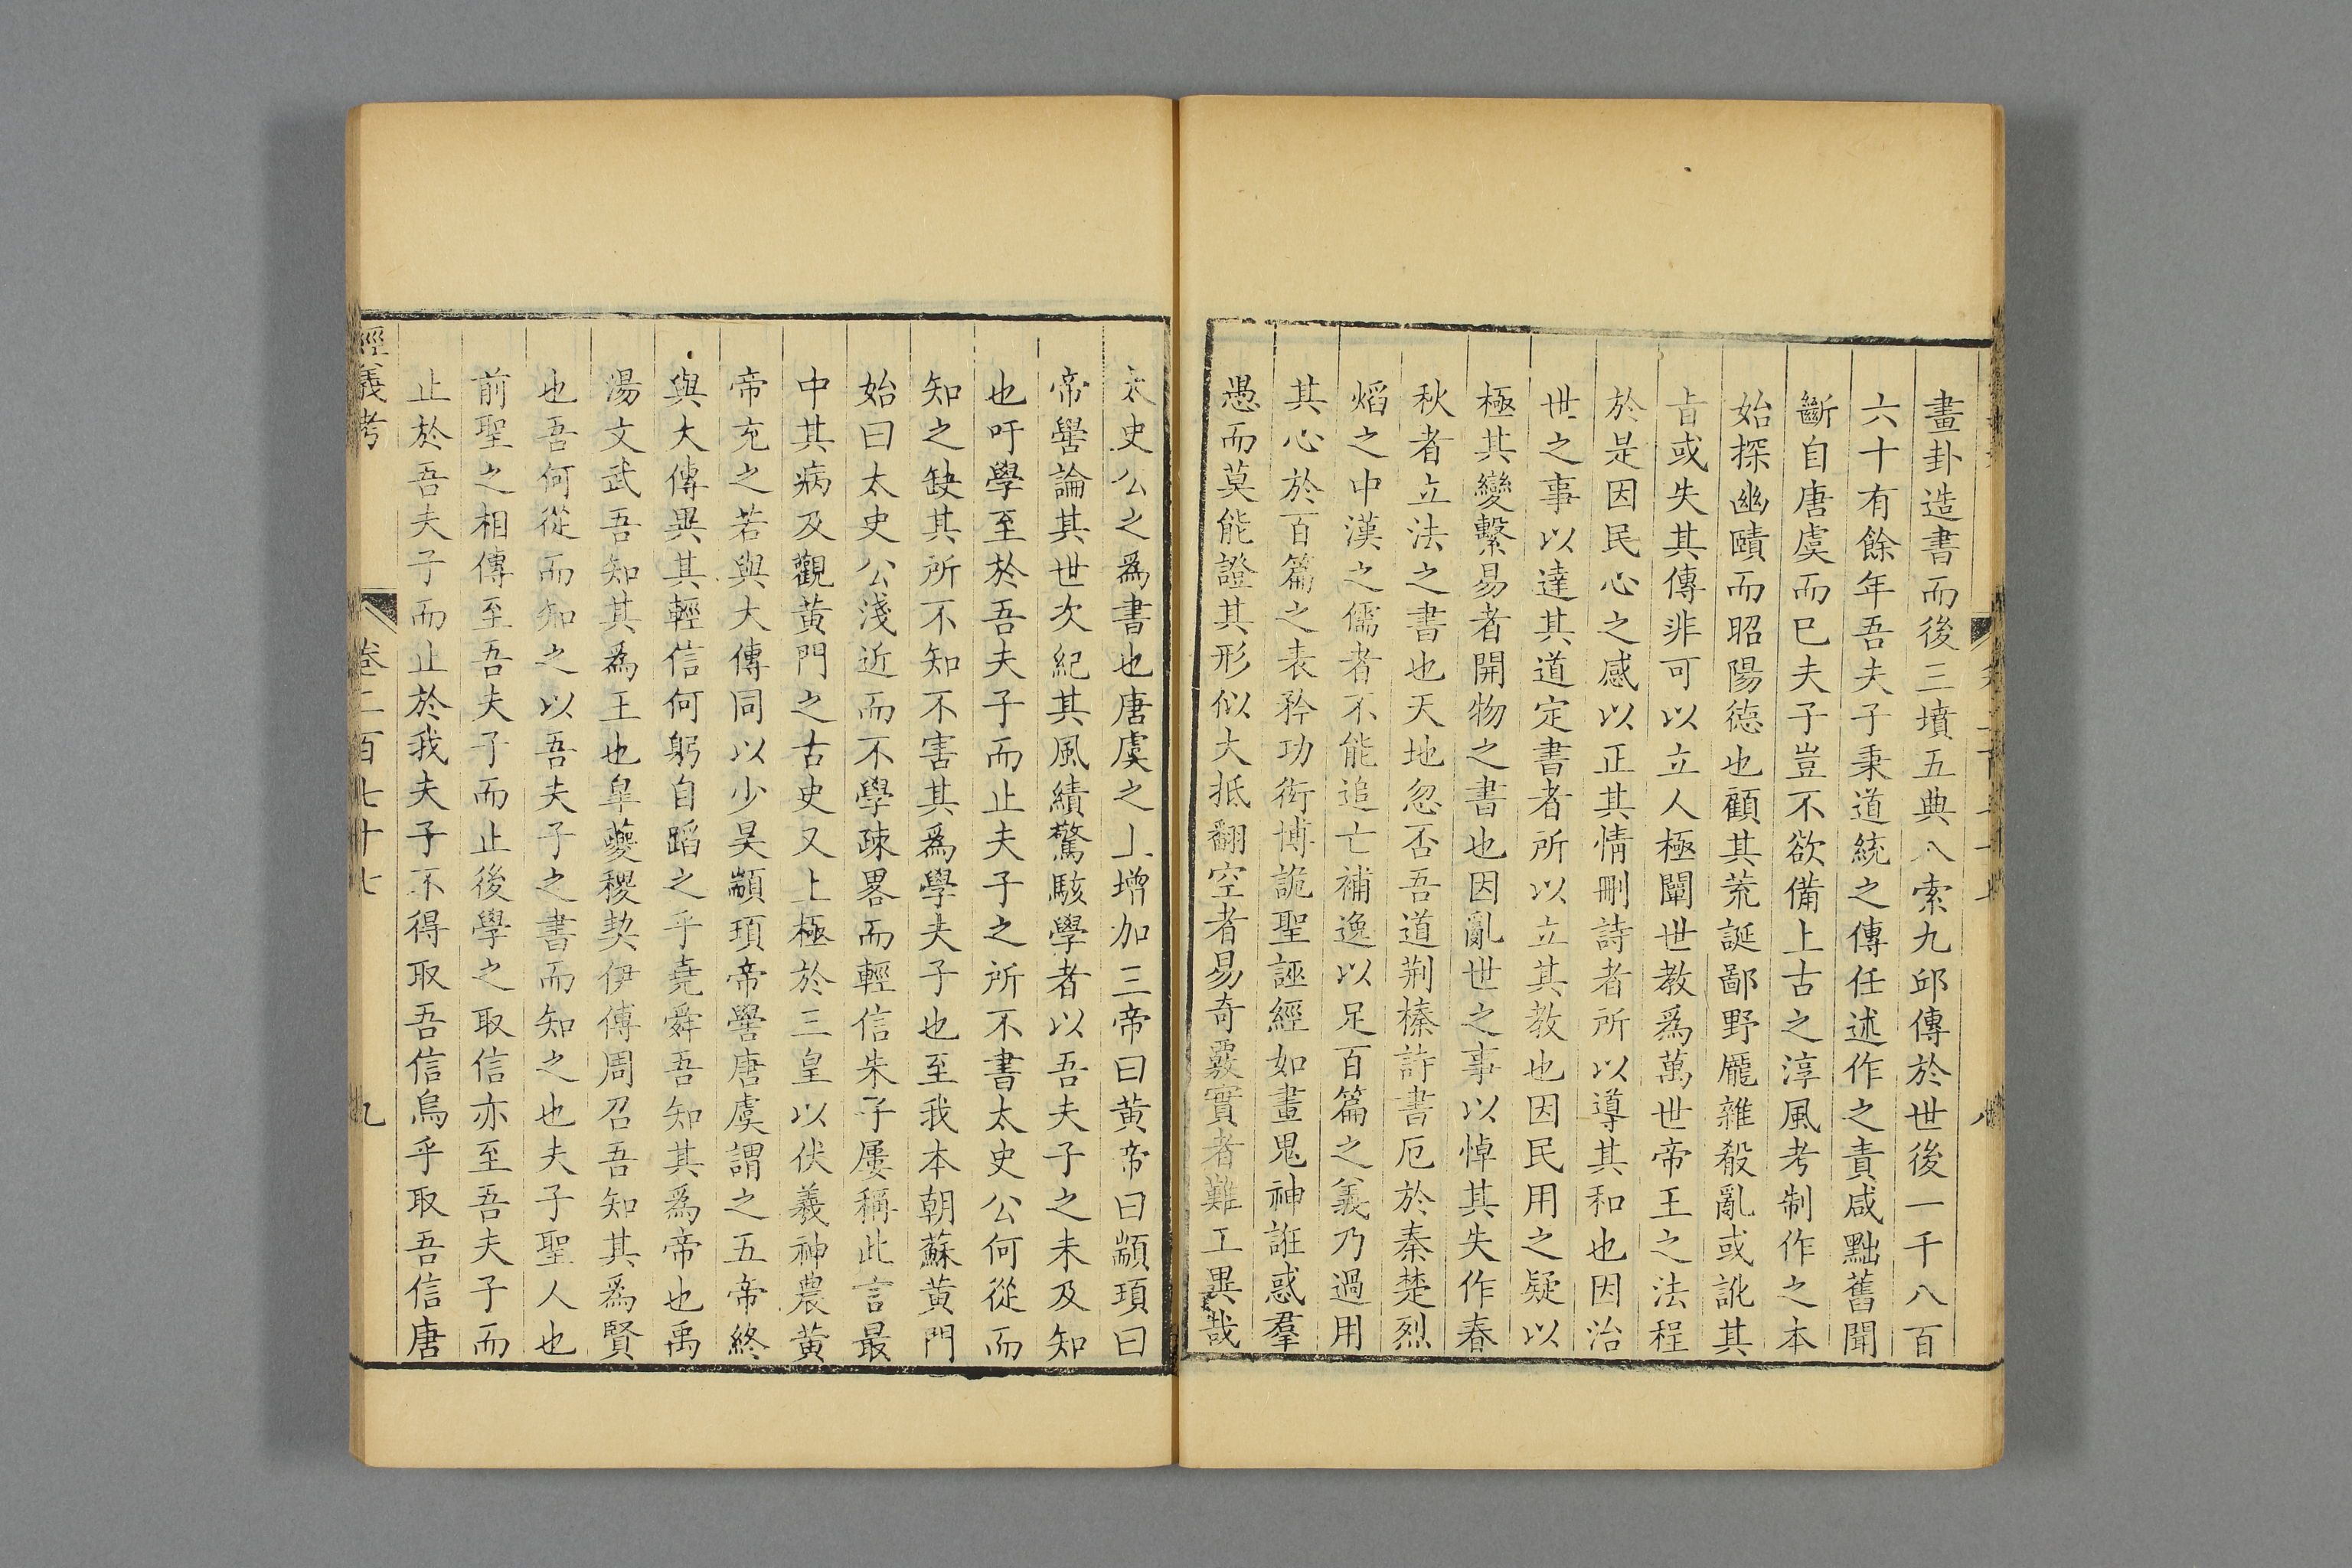 畫卦造書而後三墳五典八索九邱傳於世後一千八百
六十有餘年吾夫子秉道統之傳任述作之責咸黜舊聞
斷自唐虞而巳夫子豈不欲備上古之淳風考制作之本
始探幽賾而昭陽德也顧其荒誕鄙野龎雜殽亂或訛其
㫖或失其傳非可以立人極闡世教爲萬世帝王之法程
於是因民心之感以正其情刪詩者所以導其和也因治
世之事以達其道定書者所以立其教也因民用之疑以
極其變繫易者開物之書也因亂世之事以悼其失作春
秋者立法之書也天地忽否吾道荆榛詐書厄於秦楚烈
熖之中漢之儒者不能追亡補逸以足百篇之義乃過用
其心於百篇之表矜功衒博詭聖誣經如畫鬼神誑惑羣
愚而莫能證其形似大抵翻空者易奇覈實者難工異哉
太史公之爲書也唐虞之上增加三帝曰黄帝曰顓頊曰
帝嚳論其世次紀其風績驚駭學者以吾夫子之未及知
也吁學至於吾夫子而止夫子之所不書太史公何從而
知之缺其所不知不害其爲學夫子也至我本朝蘇黄門
始曰太史公淺近而不學疎畧而輕信朱子屢稱此言最
中其病及觀黄門之古史又上極於三皇以伏羲神農黄
帝充之若與大傳同以少昊顓頊帝嚳唐虞謂之五帝終
與大傳異其輕信何躬自蹈之乎堯舜吾知其爲帝也禹
湯文武吾知其爲王也臯夔稷契伊傳周召吾知其爲賢
也吾何從而知之以吾夫子之書而知之也夫子聖人也
前聖之相傳至吾夫子而止後學之取信亦至吾夫子而
止於吾夫子而止於我夫子不得取吾信烏乎取吾信唐
經義考
卷二百七十七
九